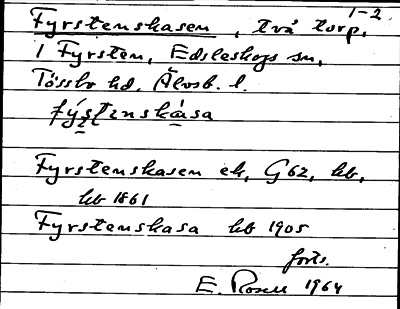 1-2
Fyrstenskasen, två torp.
/ Fyrsten, Edsleskogs sn,
Tössbo hd. Älvsb. l.
fýstenskása
Fyrstenskasen ek, G62, hb,
hb 1861
Fyrstenskasa hb 1905
forts.
E. Rosell 1964